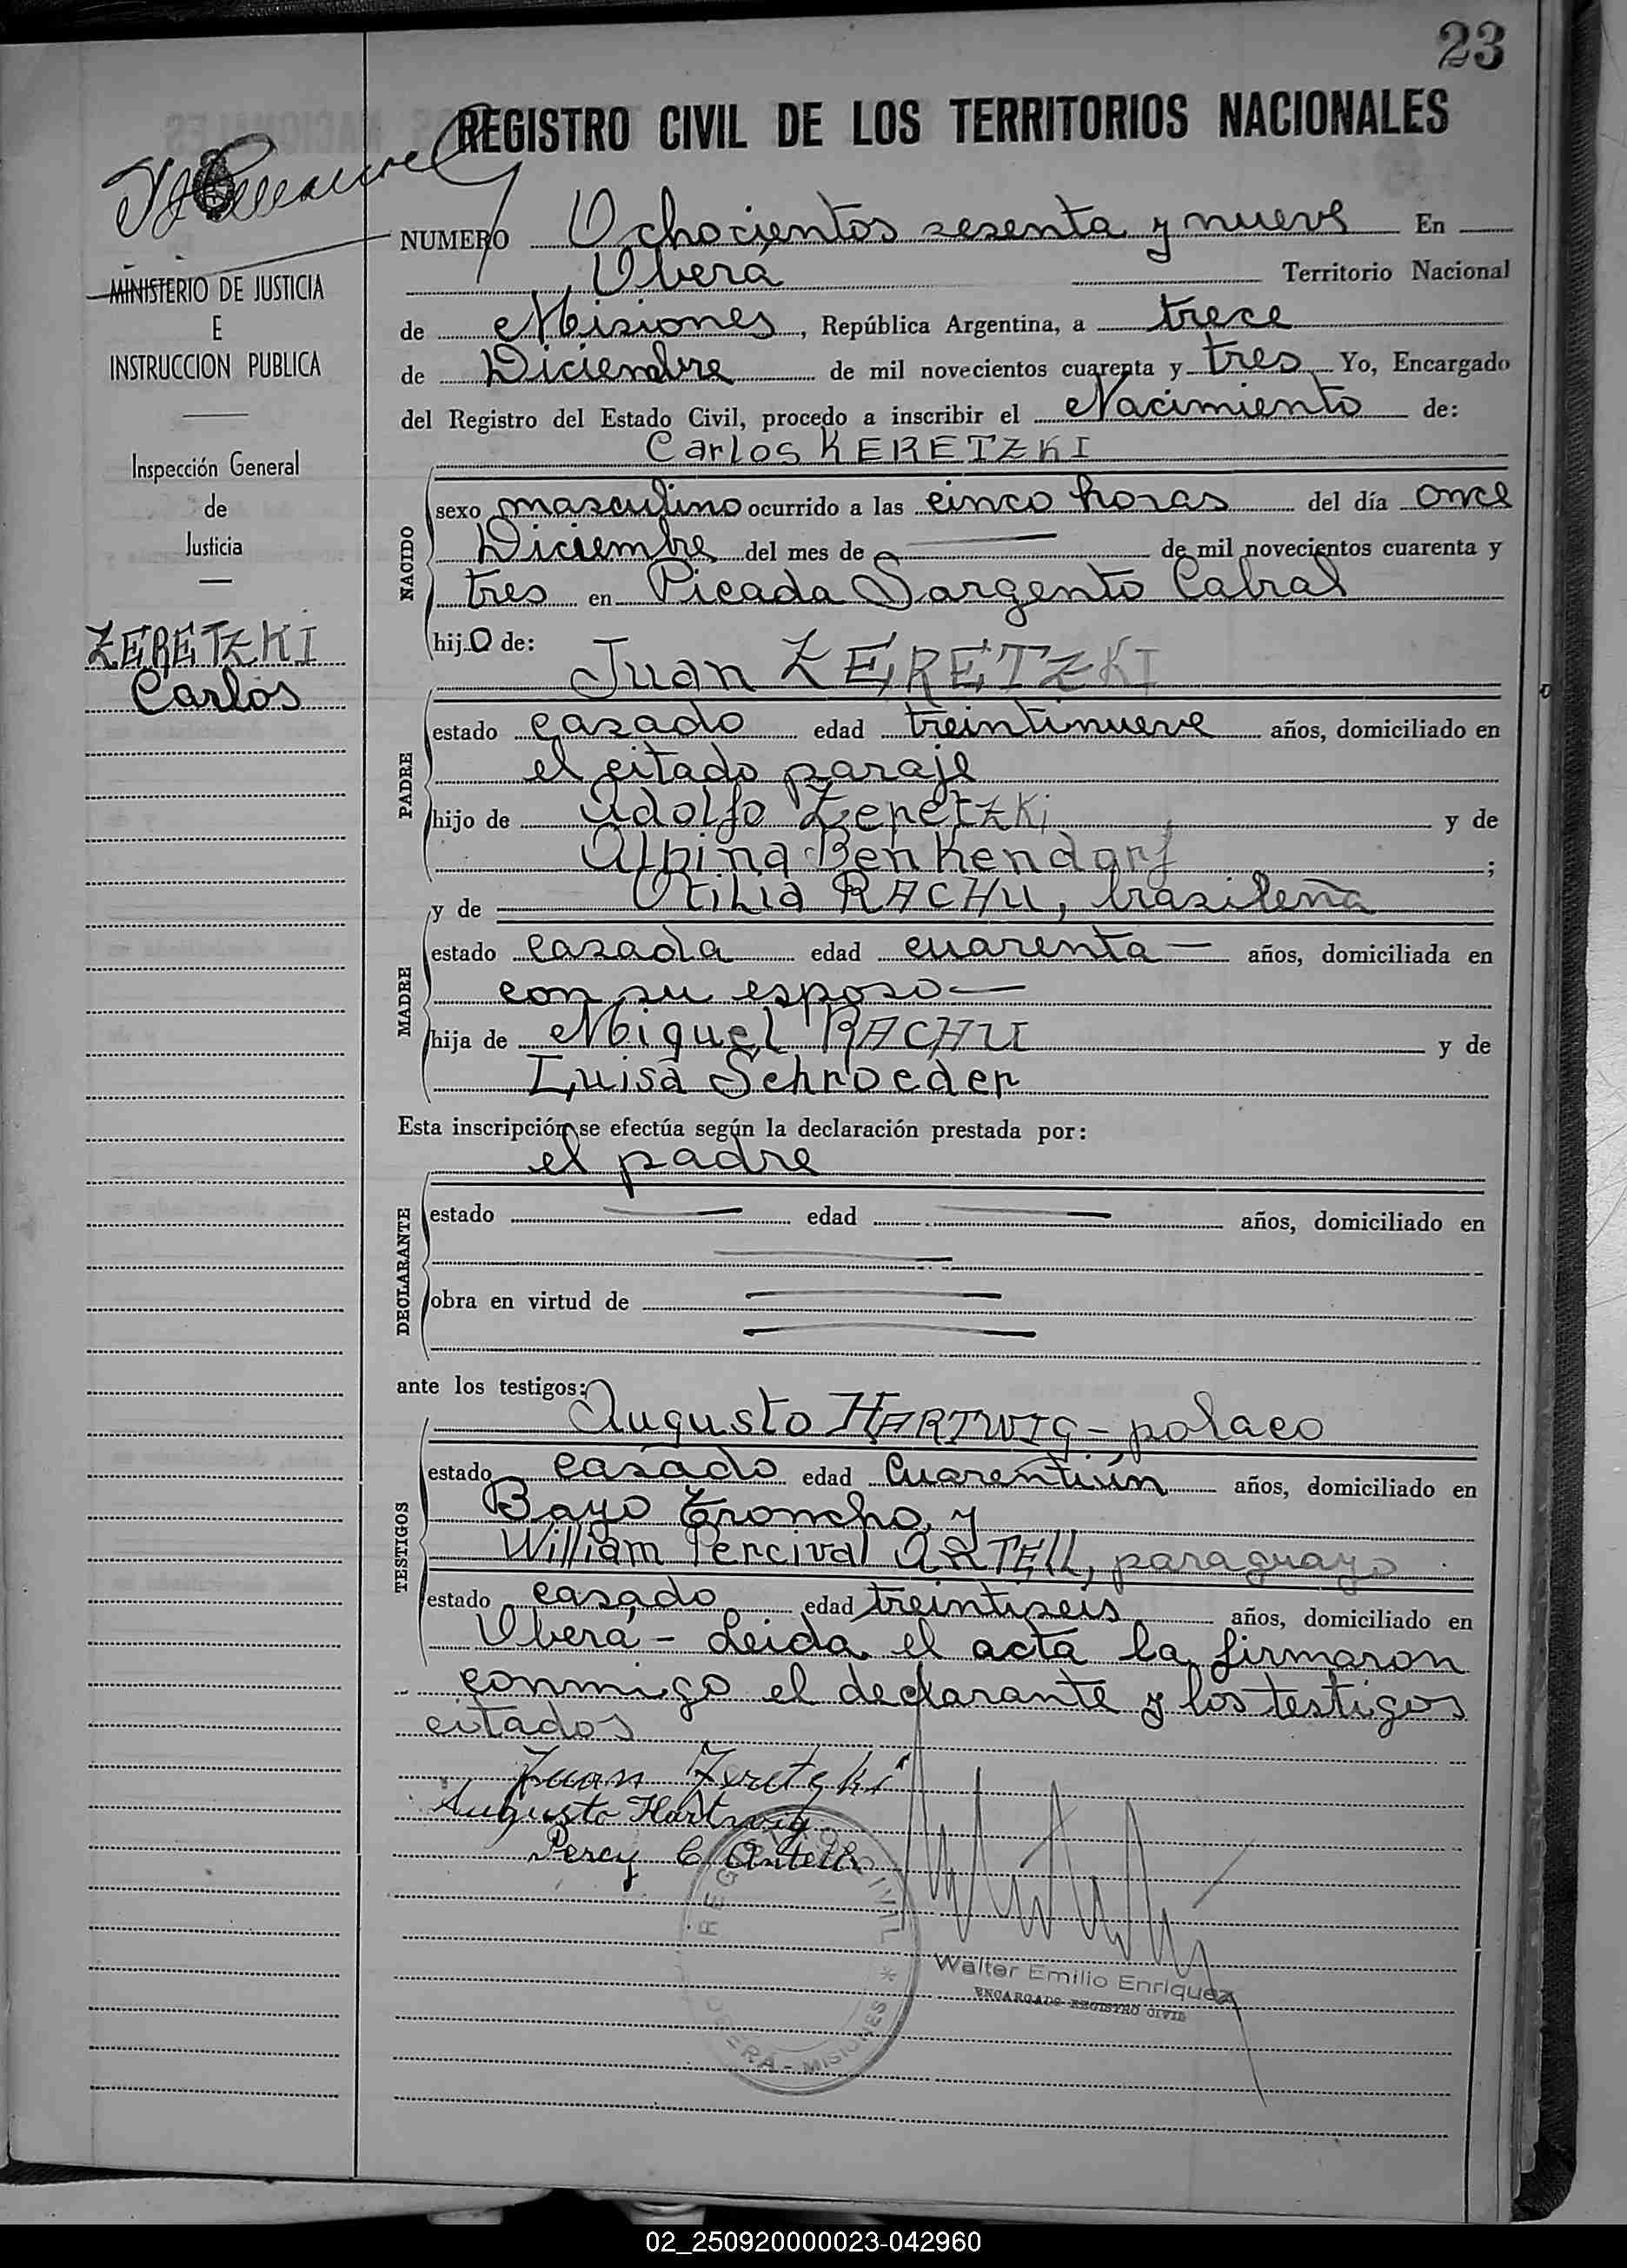 23
REGISTRO CIVIL DE LOS TERRITORIOS NACIONALES
MINISTERIO DE JUSTICIA
E
INSTRUCCION PUBLICA
Inspección General
de
Justicia
ZERETZKI
Carlos
NUMERO Ochocientos sesenta y nueve En
Oberá Territorio Nacional
de Misiones, República Argentina, a trece
de Diciembre de mil novecientos cuarenta y tres Yo, Encargado
del Registro del Estado Civil, procedo a inscribir el Nacimiento de:
Carlos KERETZKI
NACIDO
sexo masculino ocurrido a las cinco horas del día once
Diciembre del mes de de mil novecientos cuarenta y
tres en Picada Sargento Cabral
hijo de:
Juan ZERETZKI
PADRE
estado casado edad treintinueve años, domiciliado en
el citado paraje
hijo de Adolfo Zeretzki y de
Albina Benkendorf ;
y de Otilia RACHU, brasileña
MADRE
estado casada edad cuarenta — años, domiciliada en
con su esposo —
hija de Miguel RACHU y de
Luisa Schroeder
Esta inscripción se efectúa según la declaración prestada por:
el padre
DECLARANTE
estado edad años, domiciliado en
obra en virtud de
ante los testigos:
Augusto HARTWIG - polaco
TESTIGOS
estado casado edad Cuarentiún años, domiciliado en
Bayo Troncho y
William Percival ASTELL, paraguayo
estado casado edad treintiseis años, domiciliado en
Oberá - Leida el acta la firmaron
conmigo el declarante y los testigos
citados
Juan Zeretzki
Augusto Hartwig
Percy C Astell
REGISTRO CIVIL * OBERÁ - MISIONES
Walter Emilio Enriquez
ENCARGADO REGISTRO CIVIL
02_250920000023-042960